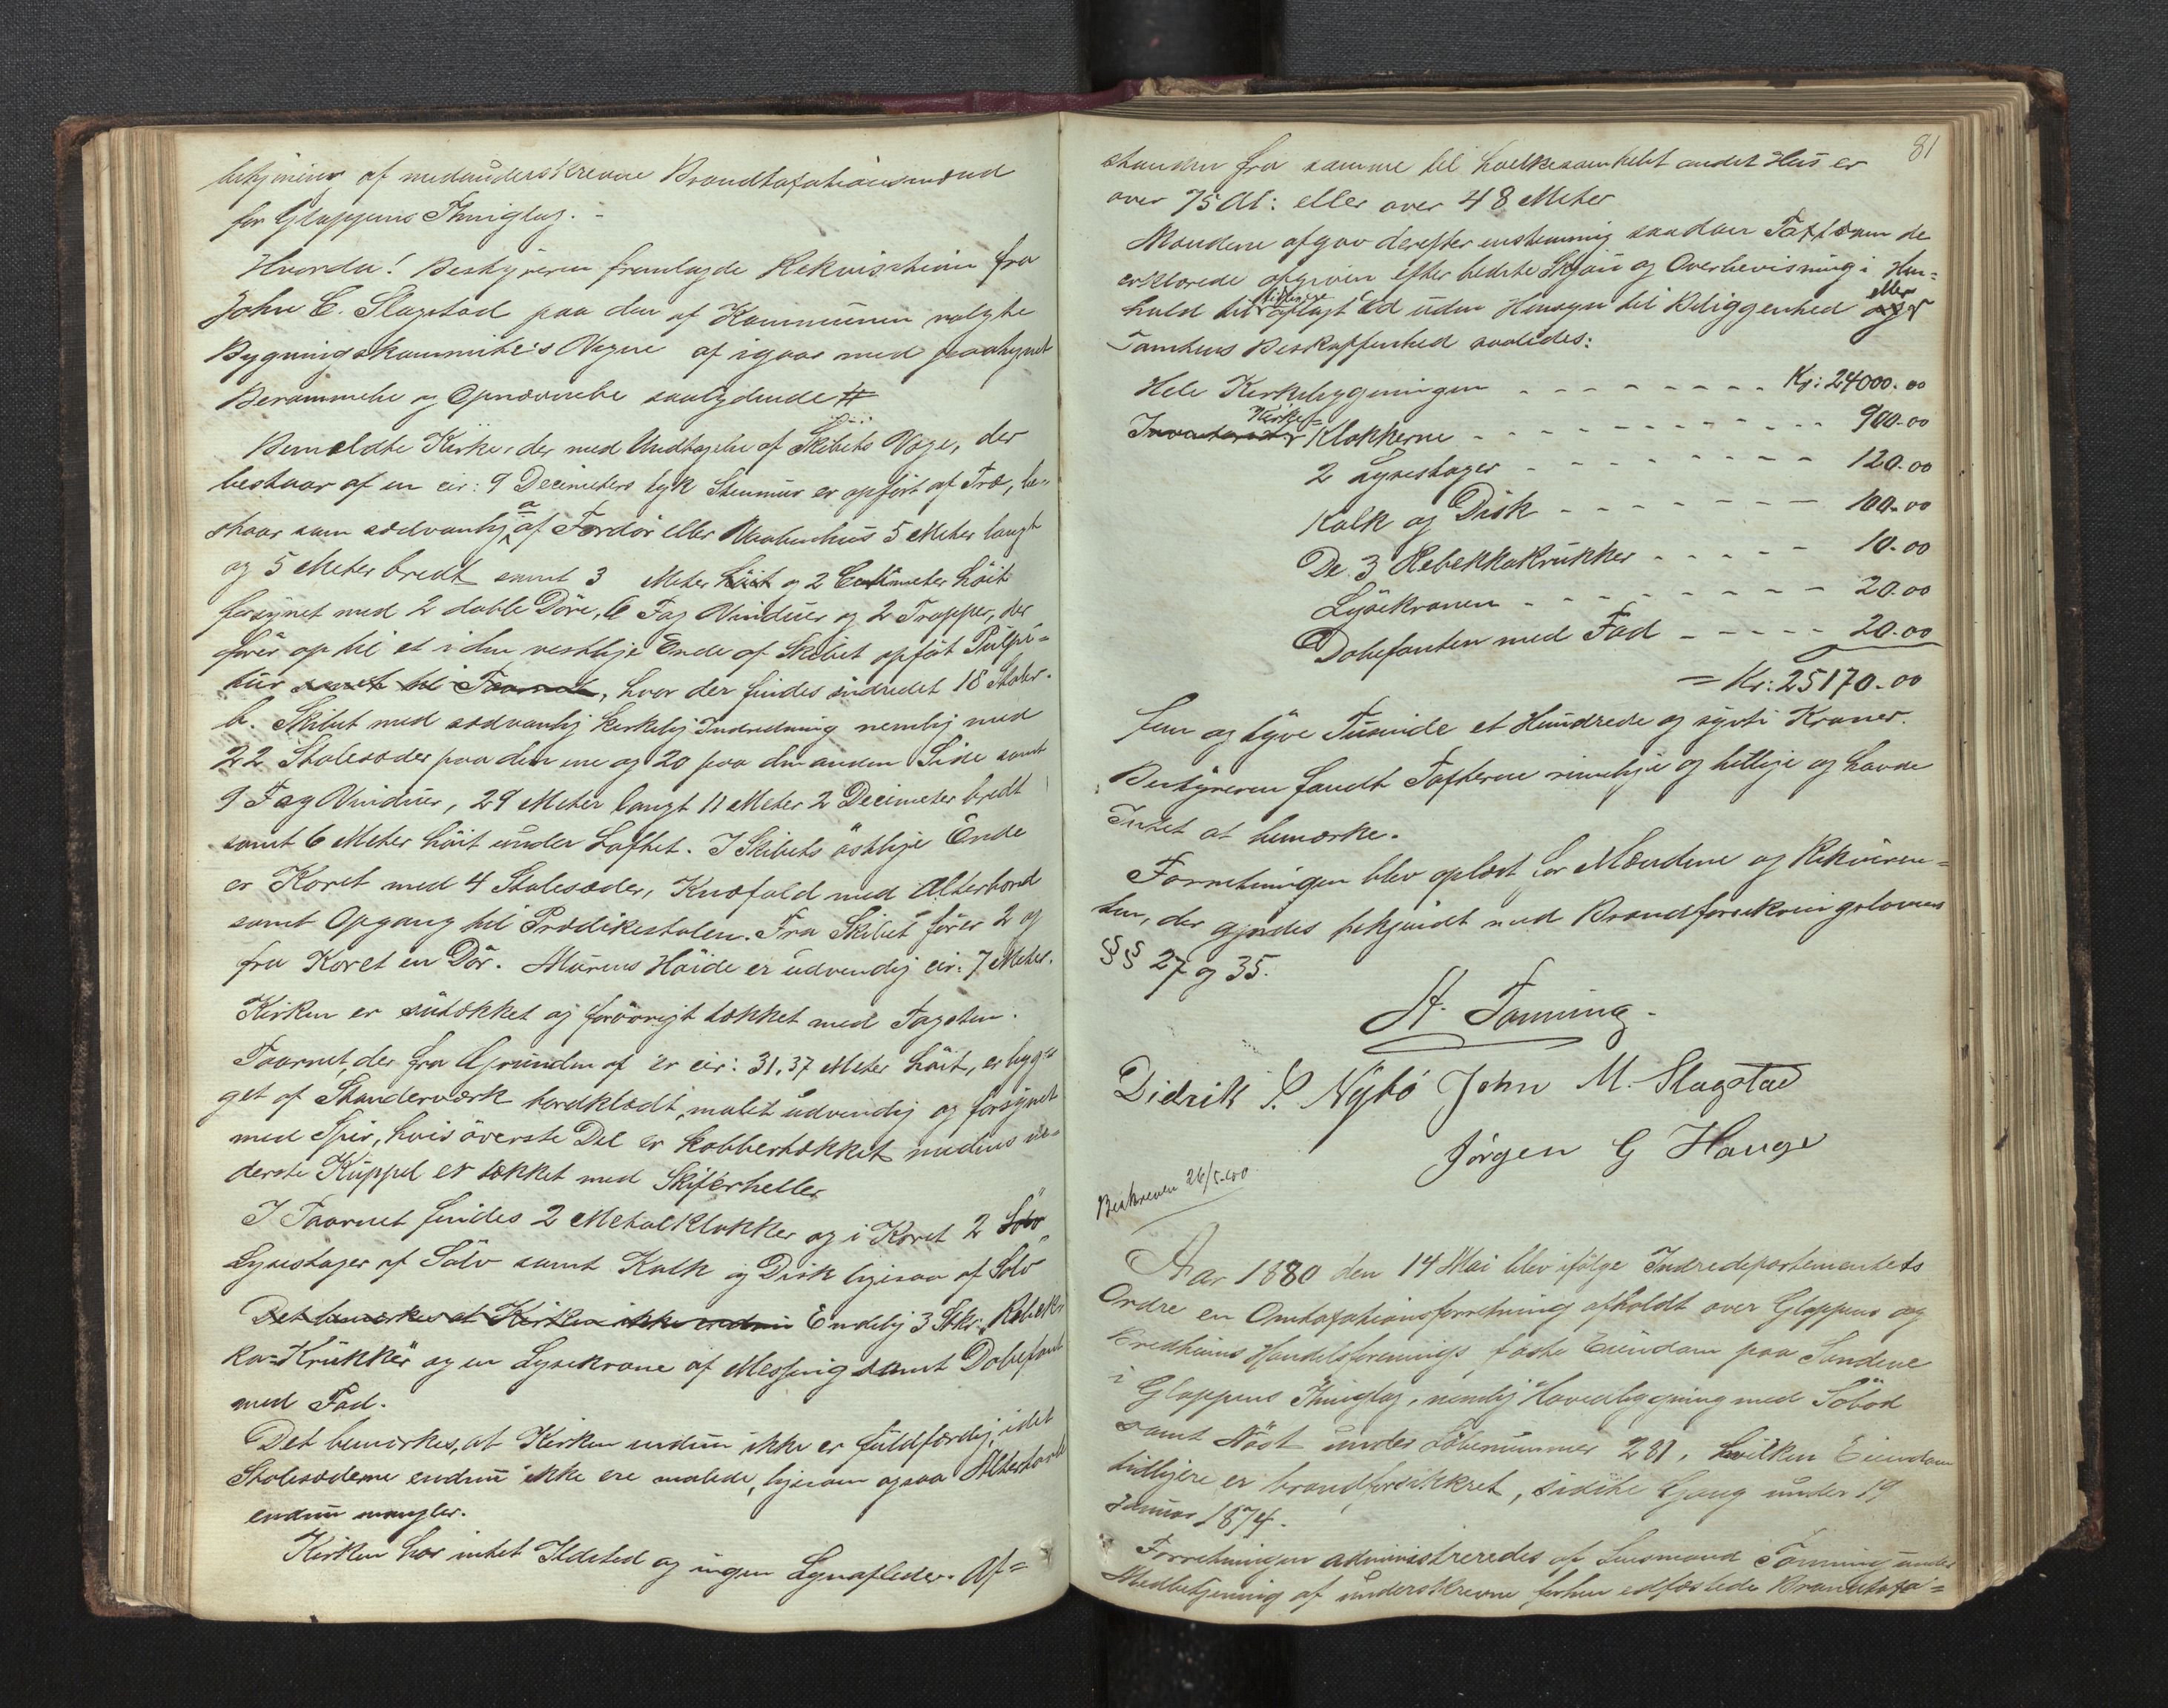 betjening af medunderskrevne Brandtaxationsmænd
for Gloppens Thinglag. -
Hvorda! Bestyreren fremlagde Rekvisition fra
John E. Slagstad paa den af Kommunen valgte
Bygningskommite's Vegne af igaar med paategnet
Berammelse og Opnævnelse saalydende #
Bemeldte Kirke, der med Undtagelse af Skibets Væge, der
bestaar af en cir: 9 Decimeters tyk Stenmur er opført af Træ, be-
staar som sædvanlig a af Fordør eller Vaabenhus 5 Meter langt
og 5 Meter bredt samt 3 Meter høit og 2 Centimeter höit
forsynet med 2 doble Döre, 6 Fag Vinduer og 2 Trapper, der
förer op til et i den vestlige Ende af Skibet opfört Pulpi-
tur samt til Taarnet, hvor der findes indredet 18 Stoler.
b. Skibet med sædvanlig kirkelig Indredning nemlig med
22 Stolesæder paa den ene og 20 paa den anden Side samt
9 Fag Vinduer, 29 Meter langt 11 Meter 2 Decimeter bredt
samt 6 Meter höit under Loftet. I Skibets östlige Ende
er Koret med 4 Stolesæder, Knæfald med Alterbord
samt Opgang til Prædikestolen. Fra Skibet förer 2 og
fra Koret en Dör. Murens Höide er udvendig cir: 7 Meter.
Kirken er sutækket og forövrigt tækket med Tagsten.
Taarnet, der fra Grunden af er cir: 31,37 Meter höit, er byg-
get af Standerværk bordklædt, malet udvendig og forsynet
med Spir, hvis överste Del er kobbertækket medens ne-
derste Kuppel er tækket med Skiferheller
I Taarnet findes 2 Metalklokker og i Koret 2 Sölv
Lysestager af Sölv samt Kalk og Disk ligesaa af Sölv
Det bemærkes at Kirken ikke endnu Endelig 3 Stkr. Rebek-
ka-Krukker og en Lysekrone af Messing samt Döbefont
med Fad.
Det bemærkes, at Kirken endnu ikke er fuldfærdig, idet
Stolesæderne endnu ikke ere malede, ligesom ogsaa Altertavle
endnu mangler.
Kirken har intet Ildsted og ingen Lynafleder. Af-
81
standen fra samme til hvilkesomhelst andet Hus er
over 75 Al: eller over 48 Meter
Mændene afgav derefter enstemmig saadan Taxt som de
erklærede afgiven efter bedste Skjön og Overbevisning i Hen-
hold til tidligere aflagt Ed uden Hensyn til Beliggenhed og eller
Tomtens Beskaffenhed saaledes:
Hele Kirkebygningen - - - - - - - - Kr: 24000.00
Inventariet Kirke- Klokkerne - - - - - - - - - - 900.00
2 Lysestager - - - - - - - - 120.00
Kalk og Disk - - - - - - - 100.00
De 3 Rebekkakrukker - - - - - 10.00
Lysekronen - - - - - - - - 20.00
Döbefonten med Fad - - - - - 20.00
= Kr: 25170.00
fem og tyve Tusinde et Hundrede og sytti Kroner.
Bestyreren fandt Taxterne rimelige og billige og havde
Intet at bemærke.
Forretningen blev oplæst for Mændene og Rekviren-
ten, der gjordes bekjendt med Brandforsikringslovens
§§ 27 og 35.
A. Tonning.
Didrik S. Nybö John M. Slagstad
Jörgen G Hauge
Beskreven 26/5.80
Aar 1880 den 14 Mai blev ifölge Indredepartementets
Ordre en Omtaxationsforretning afholdt over Gloppens og
Bredheims Handelsforenings faste Eiendom paa Sandene
i Gloppens Thinglag, nemlig Hovedbygning med Söbod
samt Nöst under Löbenummer 281, hvilken Eiendom
tidligere er brandforsikkret, sidste Gang under 19
Januar 1874.
Forretningen administreredes af Lensmand Tonning under
Medbetjening af underskrevne forhen edfæstede Brandtaxa-